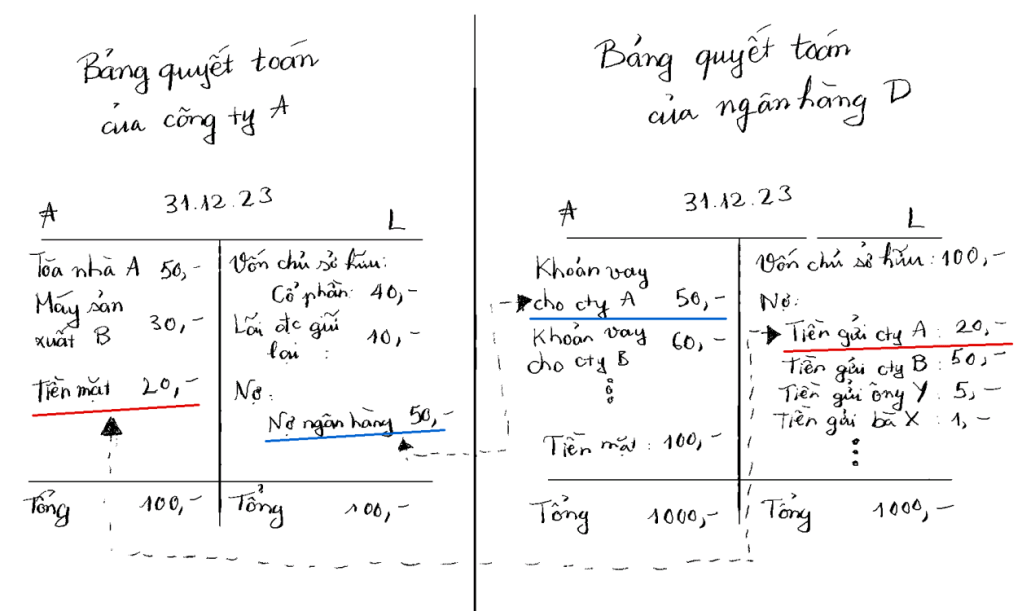 Bảng quyết toán
của công ty A
A 31.12.23 L
Tòa nhà A 50,-
Máy sản
xuất B 30,-
Tiền mặt 20,-
Vốn chủ sở hữu:
Cổ phần: 40,-
Lãi đc giữ
lại : 10,-
Nợ:
Nợ ngân hàng 50,-
Tổng 100,-
Tổng 100,-
Bảng quyết toán
của ngân hàng D
A 31.12.23 L
Khoản vay
cho cty A 50,-
Khoản vay
cho cty B 60,-
Tiền mặt: 100,-
Vốn chủ sở hữu: 100,-
Nợ:
Tiền gửi cty A: 20,-
Tiền gửi cty B: 50,-
Tiền gửi ông Y: 5,-
Tiền gửi bà X: 1,-
Tổng 1000,-
Tổng 1000,-